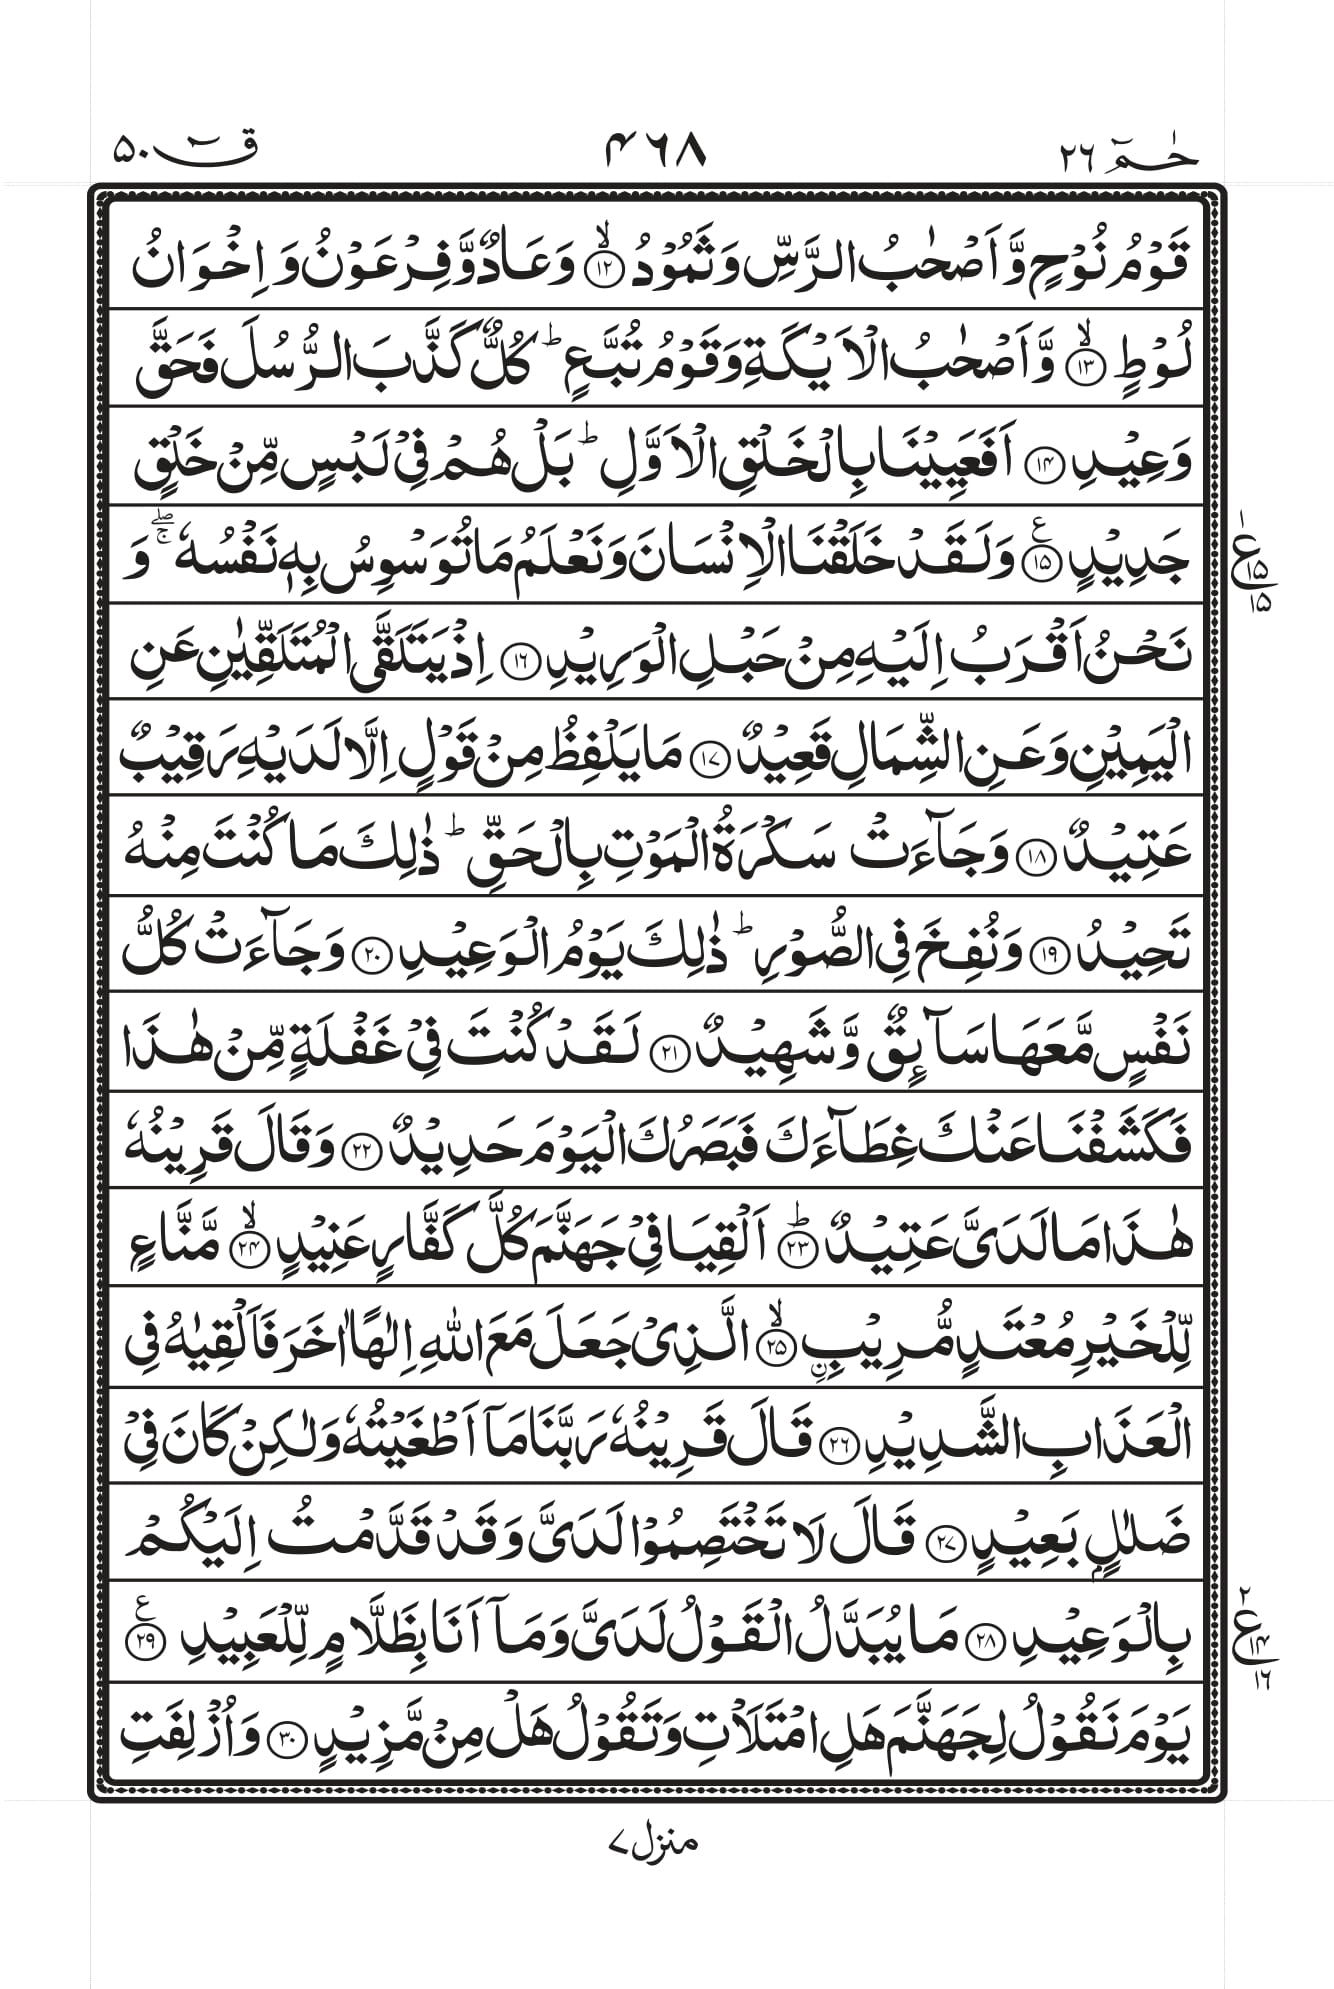 حٰمٓ ٢٦ ٤٦٨ قٓ ٥٠
قَوْمُ نُوْحٍ وَّاَصْحٰبُ الرَّسِّ وَثَمُوْدُ ۙ﴿١٢﴾ وَعَادٌ وَّفِرْعَوْنُ وَاِخْوَانُ
لُوْطٍ ۙ﴿١٣﴾ وَّاَصْحٰبُ الْاَيْكَةِ وَقَوْمُ تُبَّعٍ ؕ كُلٌّ كَذَّبَ الرُّسُلَ فَحَقَّ
وَعِيْدِ ﴿١٤﴾ اَفَعَيِيْنَا بِالْخَلْقِ الْاَوَّلِ ؕ بَلْ هُمْ فِيْ لَبْسٍ مِّنْ خَلْقٍ
جَدِيْدٍ ﴿١٥﴾ ع وَلَقَدْ خَلَقْنَا الْاِنْسَانَ وَنَعْلَمُ مَا تُوَسْوِسُ بِهٖ نَفْسُهٗ ۖۚ وَ
ع ١ ١٥ ١٥
نَحْنُ اَقْرَبُ اِلَيْهِ مِنْ حَبْلِ الْوَرِيْدِ ﴿١٦﴾ اِذْ يَتَلَقَّى الْمُتَلَقِّيٰنِ عَنِ
الْيَمِيْنِ وَعَنِ الشِّمَالِ قَعِيْدٌ ﴿١٧﴾ مَا يَلْفِظُ مِنْ قَوْلٍ اِلَّا لَدَيْهِ رَقِيْبٌ
عَتِيْدٌ ﴿١٨﴾ وَجَآءَتْ سَكْرَةُ الْمَوْتِ بِالْحَقِّ ؕ ذٰلِكَ مَا كُنْتَ مِنْهُ
تَحِيْدُ ﴿١٩﴾ وَنُفِخَ فِي الصُّوْرِ ؕ ذٰلِكَ يَوْمُ الْوَعِيْدِ ﴿٢٠﴾ وَجَآءَتْ كُلُّ
نَفْسٍ مَّعَهَا سَآئِقٌ وَّشَهِيْدٌ ﴿٢١﴾ لَقَدْ كُنْتَ فِيْ غَفْلَةٍ مِّنْ هٰذَا
فَكَشَفْنَا عَنْكَ غِطَآءَكَ فَبَصَرُكَ الْيَوْمَ حَدِيْدٌ ﴿٢٢﴾ وَقَالَ قَرِيْنُهٗ
هٰذَا مَا لَدَيَّ عَتِيْدٌ ؕ﴿٢٣﴾ اَلْقِيَا فِيْ جَهَنَّمَ كُلَّ كَفَّارٍ عَنِيْدٍ ۙ﴿٢٤﴾ مَّنَّاعٍ
لِّلْخَيْرِ مُعْتَدٍ مُّرِيْبٍ ۙ﴿٢٥﴾ ِۨالَّذِيْ جَعَلَ مَعَ اللّٰهِ اِلٰهًا اٰخَرَ فَاَلْقِيٰهُ فِي
الْعَذَابِ الشَّدِيْدِ ﴿٢٦﴾ قَالَ قَرِيْنُهٗ رَبَّنَا مَآ اَطْغَيْتُهٗ وَلٰكِنْ كَانَ فِيْ
ضَلٰلٍۭ بَعِيْدٍ ﴿٢٧﴾ قَالَ لَا تَخْتَصِمُوْا لَدَيَّ وَقَدْ قَدَّمْتُ اِلَيْكُمْ
بِالْوَعِيْدِ ﴿٢٨﴾ مَا يُبَدَّلُ الْقَوْلُ لَدَيَّ وَمَآ اَنَا بِظَلَّامٍ لِّلْعَبِيْدِ ﴿٢٩﴾ ع
ع ٢ ١٤ ١٦
يَوْمَ نَقُوْلُ لِجَهَنَّمَ هَلِ امْتَلَاْتِ وَتَقُوْلُ هَلْ مِنْ مَّزِيْدٍ ﴿٣٠﴾ وَاُزْلِفَتِ
منزل ٧